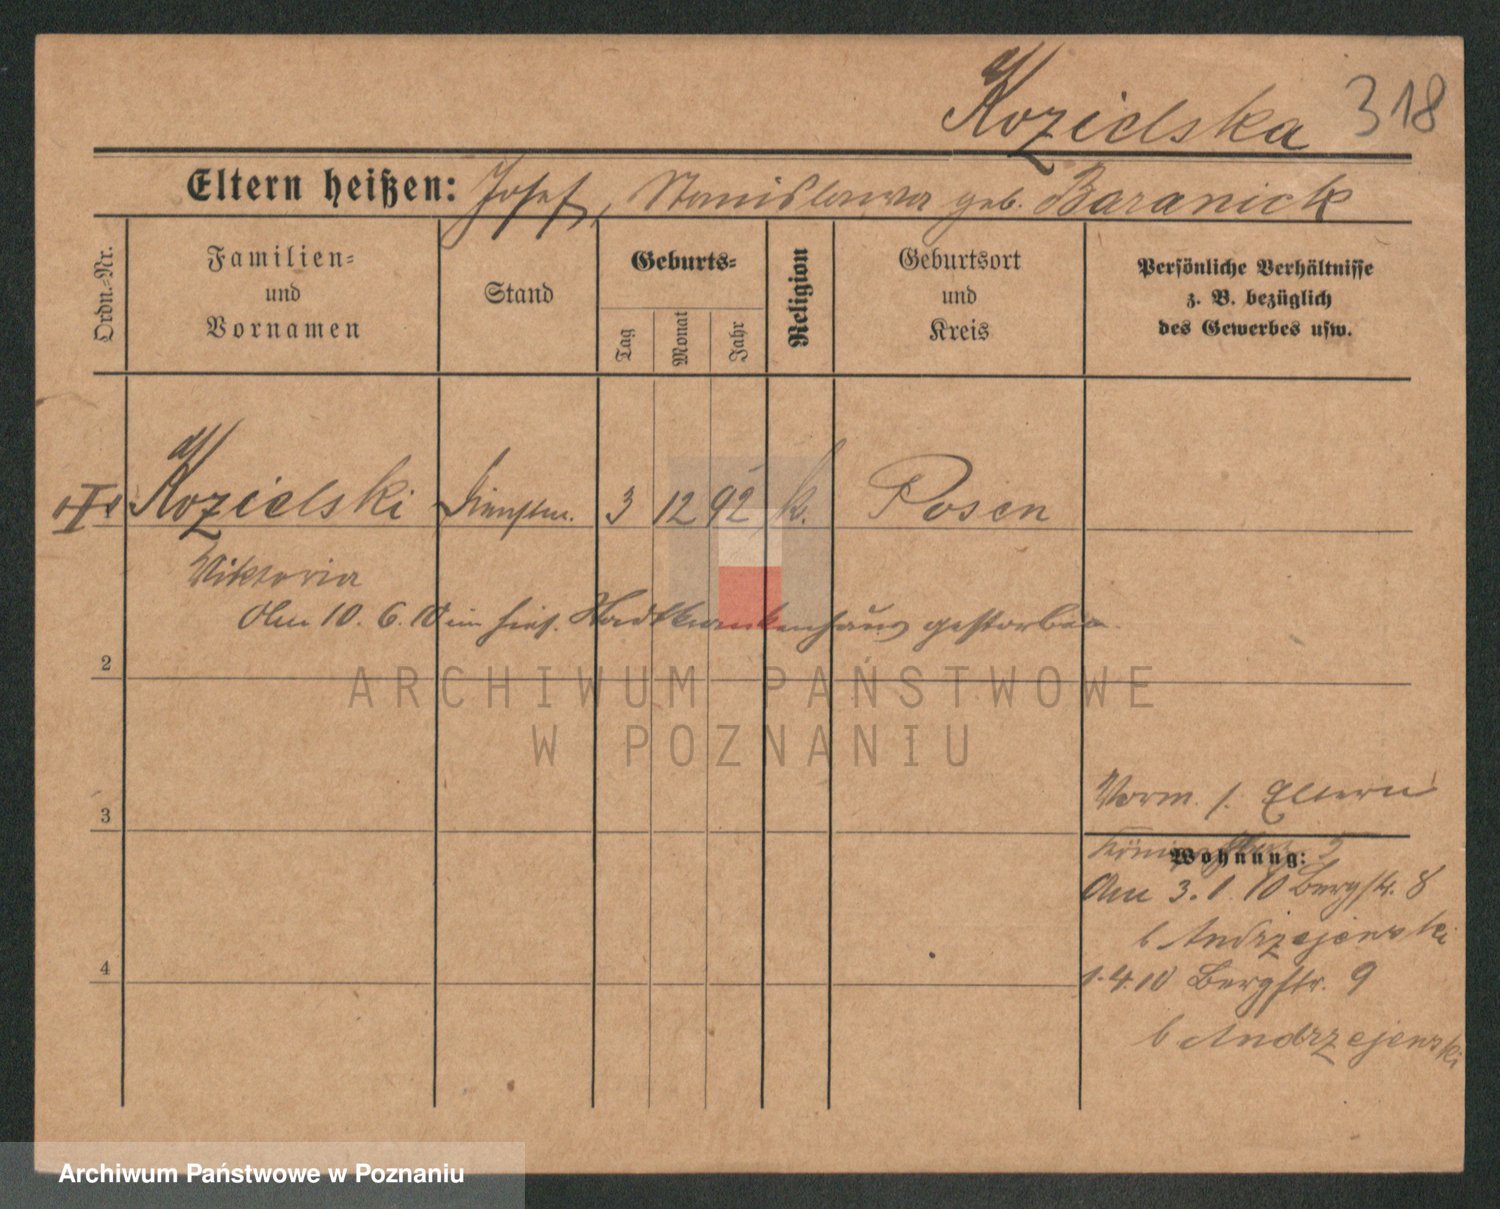 Kozielska 318
Eltern heißen: Josef, Stanislawa geb. Baranick
Ordn.-Nr.
Familien-
und
Vornamen
Stand
Geburts-
Tag
Monat
Jahr
Religion
Geburtsort
und
Kreis
Persönliche Verhältnisse
z. B. bezüglich
des Gewerbes usw.
Kozielski Dienstm. 3 12 92 k. Posen
Viktoria
Am 10. 6. 10 im hies. Stadtkrankenhaus gestorben.
2
ARCHIWUM PAŃSTWOWE
W POZNANIU
3
Vorm. s. Eltern
Wohnung:
Am 3. 1. 10 Bergstr. 8
b Andrzejewski
4
1.4.10 Bergstr. 9
b Andrzejewski
Archiwum Państwowe w Poznaniu